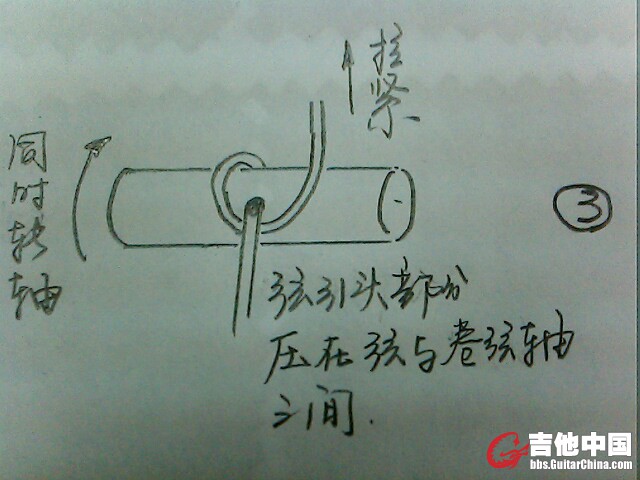 拉
紧
同
时
转
轴
③
弦引头部分
压在弦与卷弦轴
之间.
吉他中国
bbs.GuitarChina.com